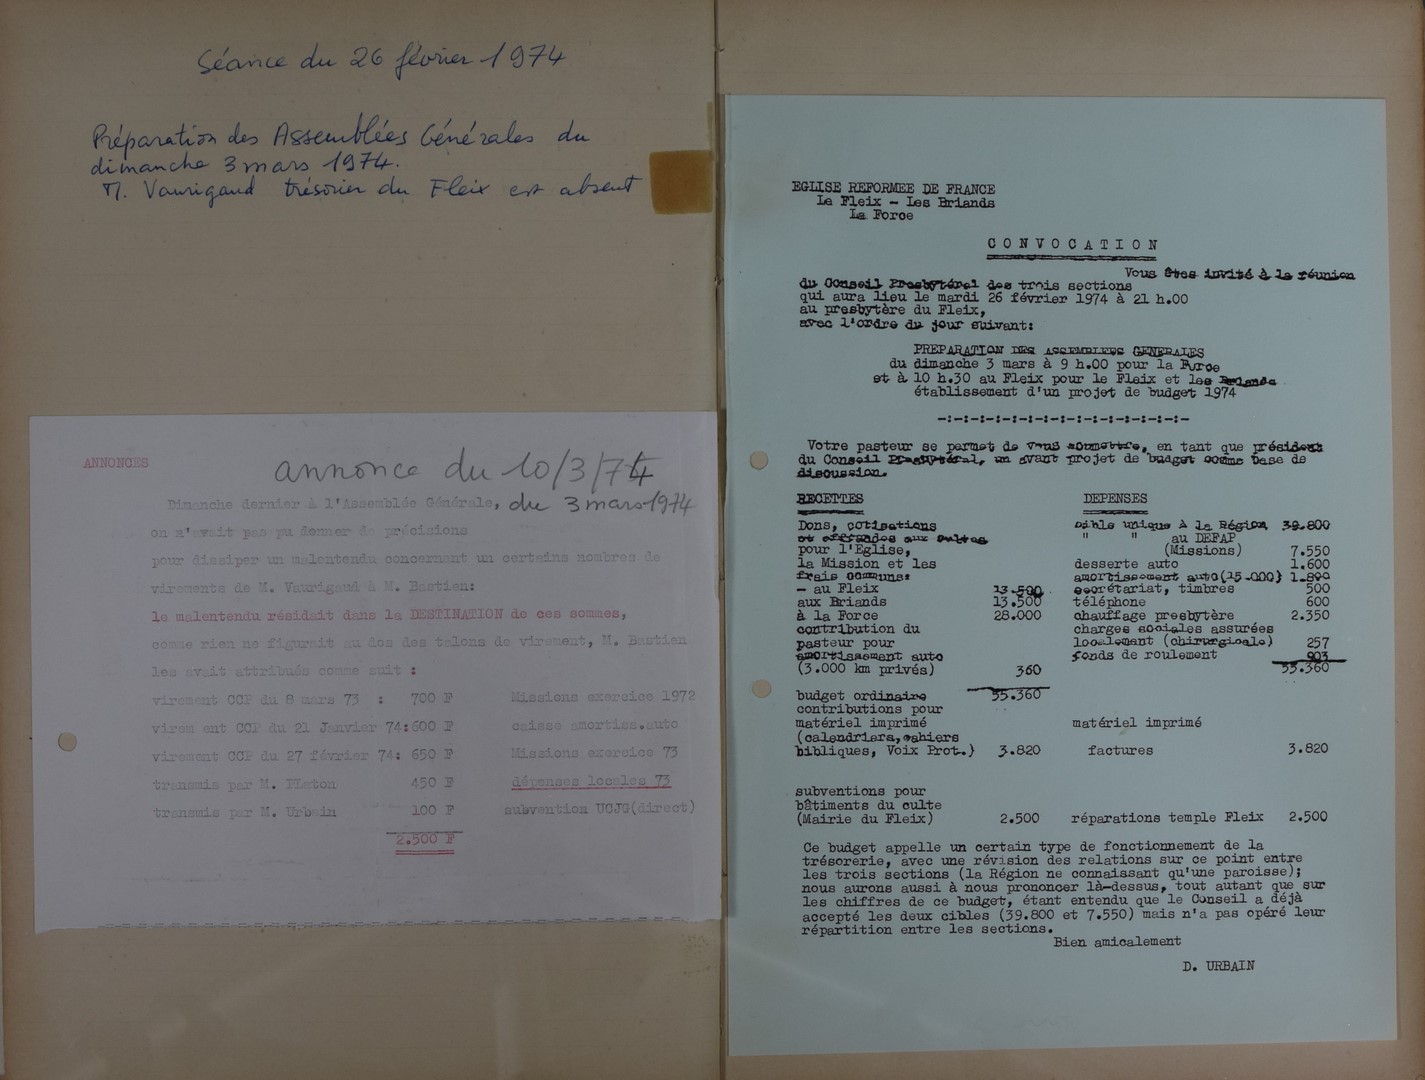 Séance du 26 février 1974
Préparation des Assemblées Générales du
dimanche 3 mars 1974.
M. Vaurigaud trésorier du Fleix est absent
ANNONCES
annonce du 10/3/74
Dimanche dernier à l'Assemblée Générale, du 3 mars 1974
on n'avait pas pu donner de précisions
pour dissiper un malentendu concernant un certains nombres de
virements de M. Vaurigaud à M. Bastien:
le malentendu résidait dans la DESTINATION de ces sommes,
comme rien ne figurait au dos des talons de virement, M. Bastien
les avait attribués comme suit :
virement CCP du 8 mars 73 : 700 F Missions exercice 1972
virem ent CCP du 21 Janvier 74:600 F caisse amortiss.auto
virement CCP du 27 février 74: 650 F Missions exercice 73
transmis par M. 450 F dépenses locales 73
transmis par M. Urbain 100 F subvention UCJG(direct)
2.500 F
EGLISE REFORMEE DE FRANCE
Le Fleix - Les Briands
La Force
CONVOCATION
Vous êtes invité à la réunion
du Conseil Presbytéral des trois sections
qui aura lieu le mardi 26 février 1974 à 21 h.00
au presbytère du Fleix,
avec l'ordre du jour suivant:
PREPARATION DES ASSEMBLEES GENERALES
du dimanche 3 mars à 9 h.00 pour la Force
et à 10 h.30 au Fleix pour le Fleix et les Briands
établissement d'un projet de budget 1974
-:-:-:-:-:-:-:-:-:-:-:-:-:-:-
Votre pasteur se permet de vous soumettre, en tant que président
du Conseil Presbytéral, un avant projet de budget comme base de
discussion.
RECETTES DEPENSES
Dons, cotisations cible unique à la Région 39.800
et offrandes aux cultes " " au DEFAP
pour l'Eglise, (Missions) 7.550
la Mission et les desserte auto 1.600
frais communs: amortissement auto(15.000) 1.800
- au Fleix 13.500 secrétariat, timbres 500
aux Briands 13.500 téléphone 600
à la Force 28.000 chauffage presbytère 2.350
contribution du charges sociales assurées
pasteur pour localement (chirurgicale) 257
amortissement auto fonds de roulement 903
(3.000 km privés) 360 55.360
budget ordinaire 55.360
contributions pour
matériel imprimé matériel imprimé
(calendriers,cahiers
bibliques, Voix Prot.) 3.820 factures 3.820
subventions pour
bâtiments du culte
(Mairie du Fleix) 2.500 réparations temple Fleix 2.500
Ce budget appelle un certain type de fonctionnement de la
trésorerie, avec une révision des relations sur ce point entre
les trois sections (la Région ne connaissant qu'une paroisse);
nous aurons aussi à nous prononcer là-dessus, tout autant que sur
les chiffres de ce budget, étant entendu que le Conseil a déjà
accepté les deux cibles (39.800 et 7.550) mais n'a pas opéré leur
répartition entre les sections.
Bien amicalement
D. URBAIN